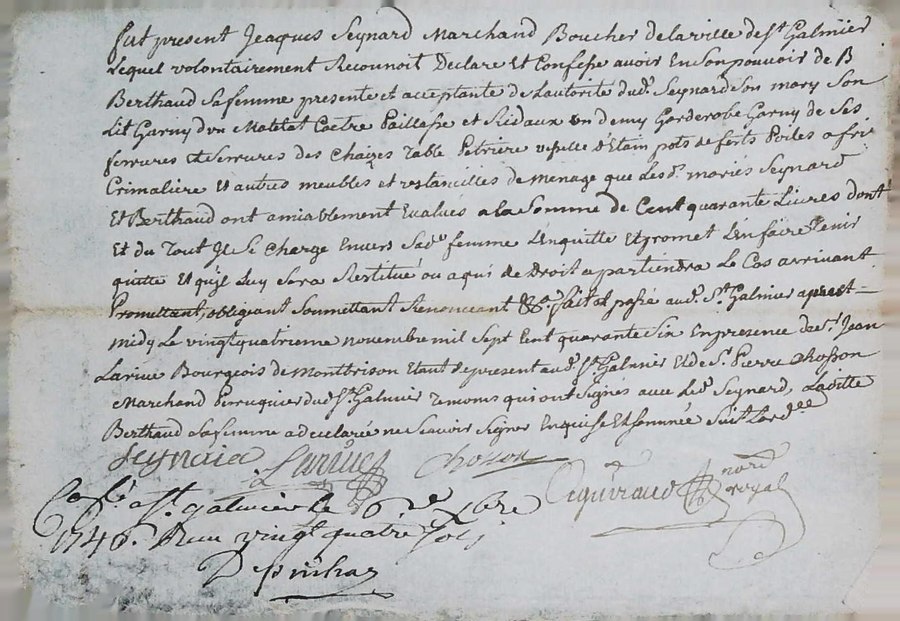 fut present Jeaques Seynard Marchand Boucher de laville de St Galmier
Lequel volontairement Reconnoit Declare Et Confesse avoir En Son pouvoir de B
Berthaud Sa femme presente et acceptante de Lautorité dud. Seynard Son mary Son
Lit Garny d'un Matelat Coetre Paillasse et Ridaux un demy Garderobe Garny de Ses
ferrures et Serrures des Chaizes Table Petriere vesselle d'Etain pots de ferts Poiles a frir
Crimaliere Et autres meubles et ustancilles de menage que Lesd. mariés Seynard
Et Berthaud ont amiablement Evalués a la Somme de Cent quarante Livres dont
Et du Tout Il Se Charge Envers Sad. femme L'enquitte Et promet L'en faire tenir
quitte Et qu'il Luy Sera Restitué ou a qui de Droit apartiendra Le Cas arrivant
Promettant, obligeant Soumettant Renonceant &a fait et passé aud. St Galmier apres
midy Le vingtquatrieme novembre mil Sept Cent quarante Six En presence de Sr. Jean
Larive Bourgeois de Montbrison Etant de present aud. St Galmier Et de Sr. Pierre Chosson
Marchand Perruquier dud. St. Galmier Temoins qui ont Signés avec Led. Seynard, Laditte
Berthaud Sa femme a declarée ne Scavoir Signer Enquise Et Sommée Suivt. Lordce
Seynard Larive Chosson
Giquiraud nore royal
Con.lé a St. galmier le 6 re xbre
1746. Reçu vingt quatre Sols